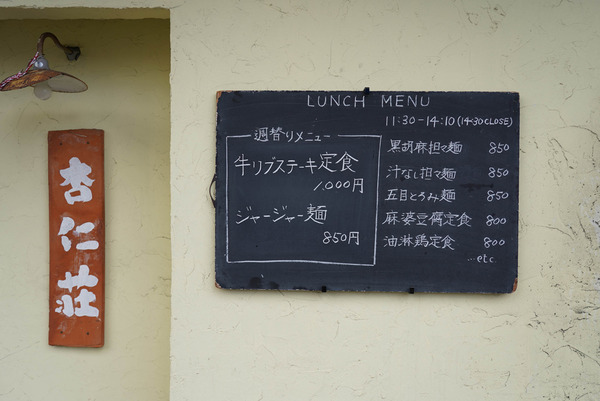 杏仁荘
LUNCH MENU
11:30-14:10(14:30CLOSE)
週替りメニュー
牛リブステーキ定食
1,000円
ジャージャー麺
850円
黒胡麻担々麺 850
汁なし担々麺 850
五目とろみ麺 850
麻婆豆腐定食 800
油淋鶏定食 800
...etc.